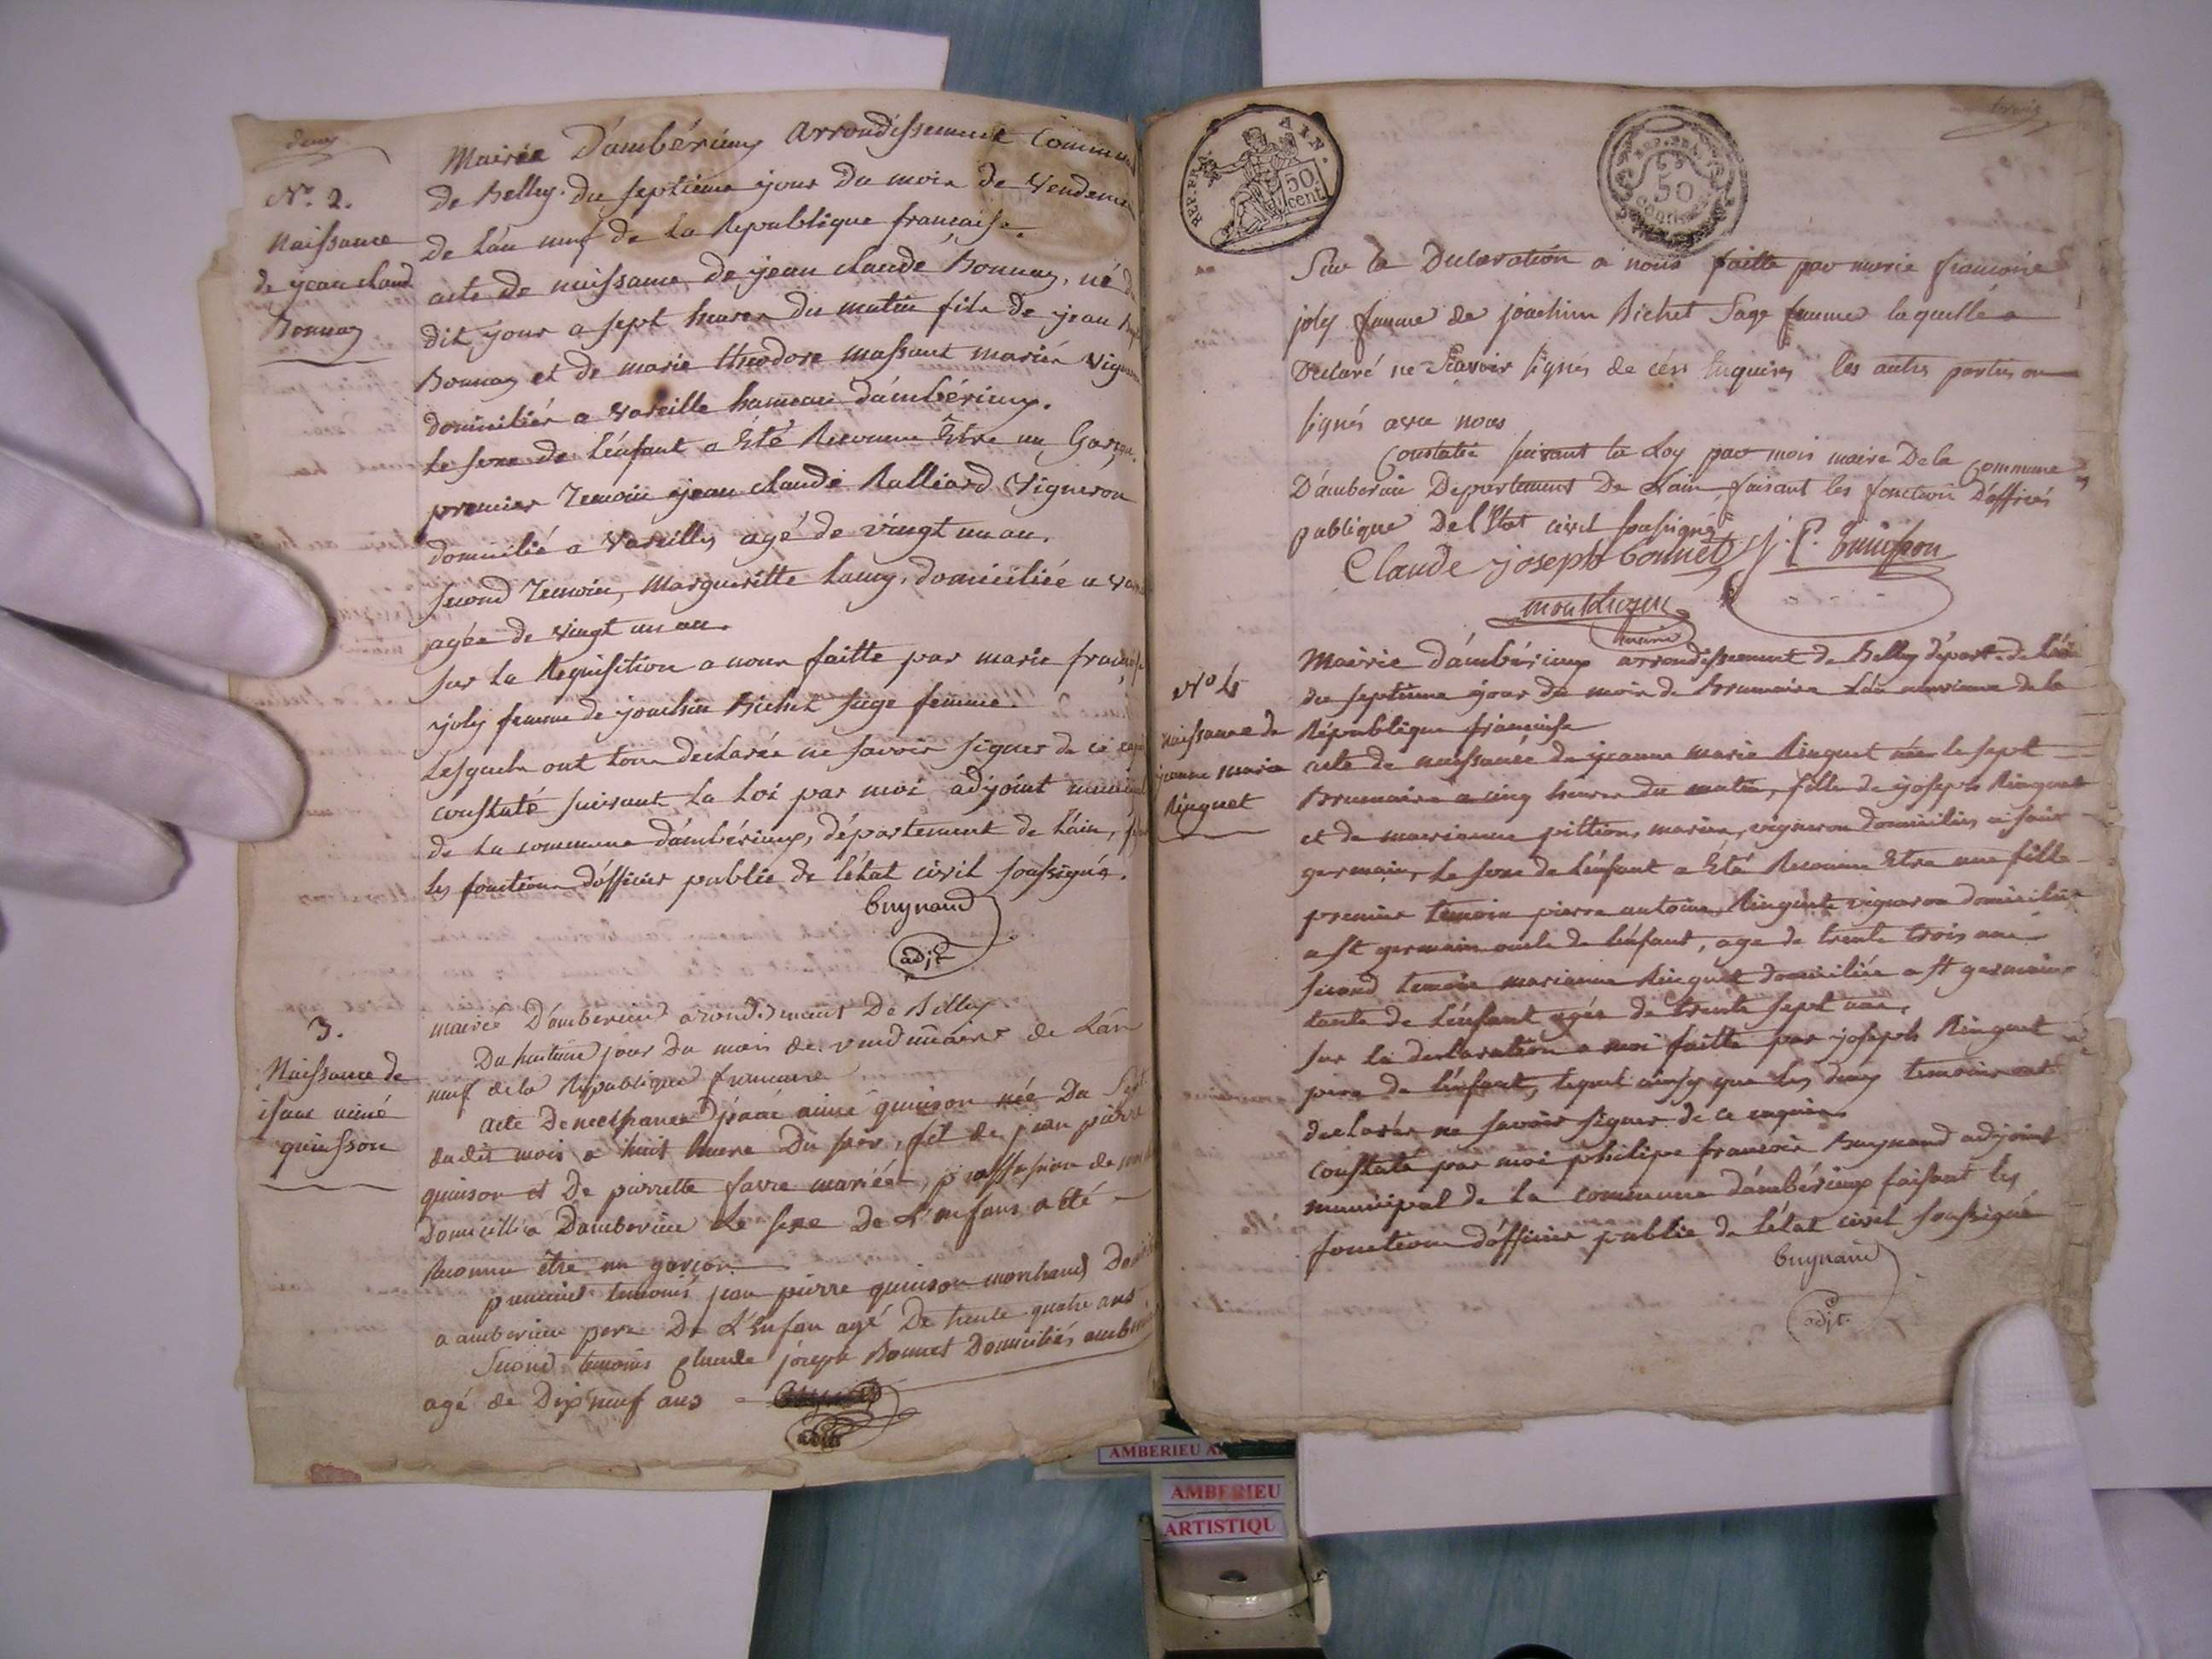 deux
N.o 2.
Naissance
de jean claude
Bonnaz
Mairie D'ambérieux arrondissement Commun
de Belley. du septieme jour du mois de Vendem
De L'an neuf de La République francaise.
acte de naissance de jean claude Bonnaz, né du
dit jour a sept heures du matin fils de jean
Bonnaz et de marie theodore massant mariés Vigne
domiciliés a Vareille hameau d'ambérieux.
Le sexe de L'enfant a Eté Reconnu Etre un Garçon.
premier Temoin jean claude Ralliard Vigneron
domicilié a Vareilles agé de vingt un an.
second Temoin, Margueritte Lamy, domiciliée a Va
agée de vingt un an.
sur La Requisition a nous faitte par marie francoise
joly femme de joachim Richet sage femme.
Lesquels ont tous declarés ne savoir signer de ce
constaté suivant La Loi par moi adjoint municipal
de La commune d'ambérieux, département de L'ain,
les fonctions d'officier public de l'état civil soussigné.
Buynand
adjt
3.
Naissance de
isaac aimé
quinsson
mairie D'amberieu arondismens De Belley
Du huitieme jour Du mois de vendemiaire de L'an
neuf de la Republique francaise
acte De naissance D'isaac aimé quinson née Du Sept
dudit mois a huit heure Du soir, fils de jean pierre
quinson et De pierrette favre mariés, proffession de
Domicillié a Damberieu Le sexe De L'enfans a été
Reconnu être un garcon
premier temoins jean pierre quinson marchand Do
a amberieu pere De L'Enfan agé De trente quatre ans
Second temoins Claude joseph Bonnet Domiciliés amb
agé de Dix neuf ans
trois
REP. FRA.
AIN.
50
cent.
REP. FRA.
50
centimes
Sur la Declaration a nous faitte par marie francoise
joly femme de joachim Richet Sage femme laquelle a
Declaré ne Scavoir signés de ces Enquires les autres parties on
signés avec nous
Constatée suivant la Loy par mois maire De la Commune
D'amberieu Departement De L'ain, faisant les fonction D'officiés
publique De l'Etat civil soussigné
Claude joseph bonnet J. P. quinsson
maire
N.o 4
Naissance de
jeanne marie
Ringuet
Mairie d'ambérieux arrondissement de Belley départ. de L'ain
du septieme jour du mois de Brumaire L'an neuvieme de la
République francaise
acte de naissance de jeanne marie Ringuet née le sept
Brumaire a cinq heures du matin, fille de joseph Ringuet
et de marianne pittion, mariés, vigneron domiciliés a saint
germain, Le sexe de L'enfant a Eté Reconnu Etre une fille
premier temoin pierre antoine Ringuet vigneron domicilié
a St germain oncle de L'enfant, agé de trente trois ans
second temoin marianne Ringuet domiciliée a St germain
tante de L'enfant agée de trente sept ans.
sur La declaration a moi faitte par joseph Ringuet
pere de L'enfant, lequel ainsy que les deux temoins ont
declarés ne savoir signer de ce enquis
constaté par moi philipe francois Buynand adjoint
municipal de La commune d'ambérieux faisant les
fonctions d'officier public de L'état civil soussigné
Buynand
adjt.
AMBERIEU
AMBERIEU
ARTISTIQU